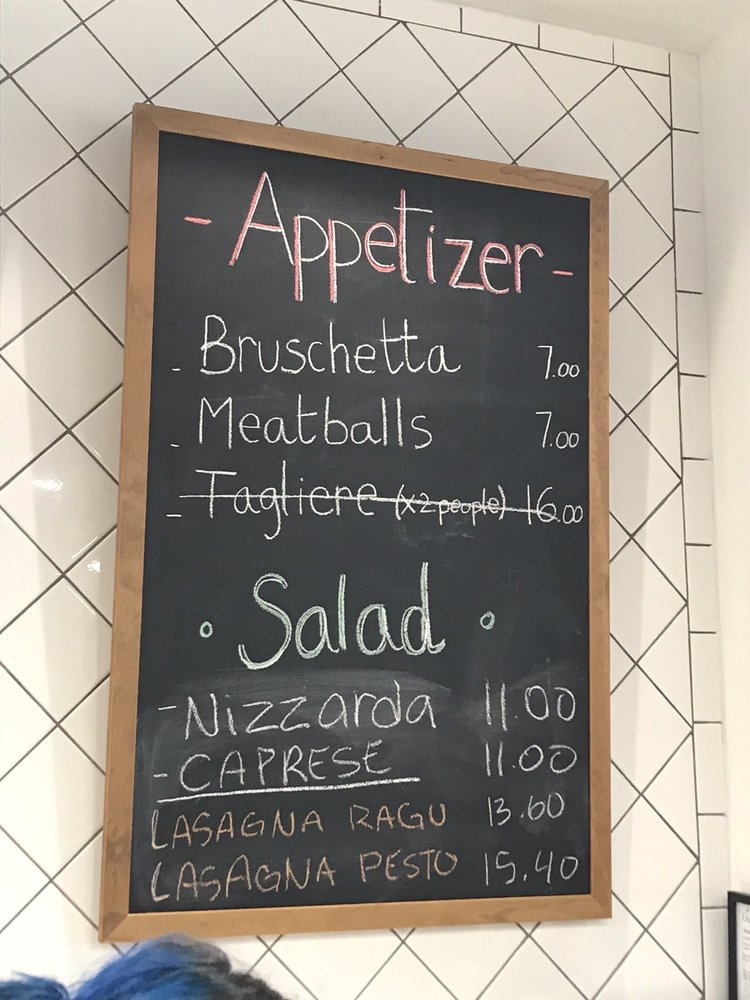 - Appetizer -
- Bruschetta 7.00
- Meatballs 7.00
- Tagliere (x2 people) 16.00
• Salad •
- Nizzarda 11.00
- CAPRESE 11.00
LASAGNA RAGU 13.60
LASAGNA PESTO 15.40